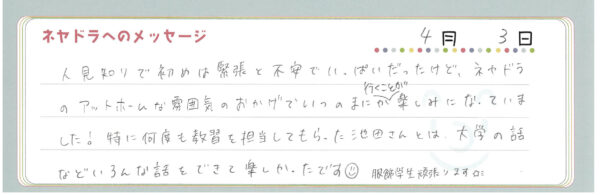 ネヤドラへのメッセージ
4月 3日
人見知りで初めは緊張と不安でいっぱいだったけど、ネヤドラ
のアットホームな雰囲気のおかげでいつのまにか行くことが楽しみになっていま
した！特に何度も教習を担当してもらった池田さんとは、大学の話
などいろんな話をできて楽しかったです☺ 服飾学生頑張ります☺